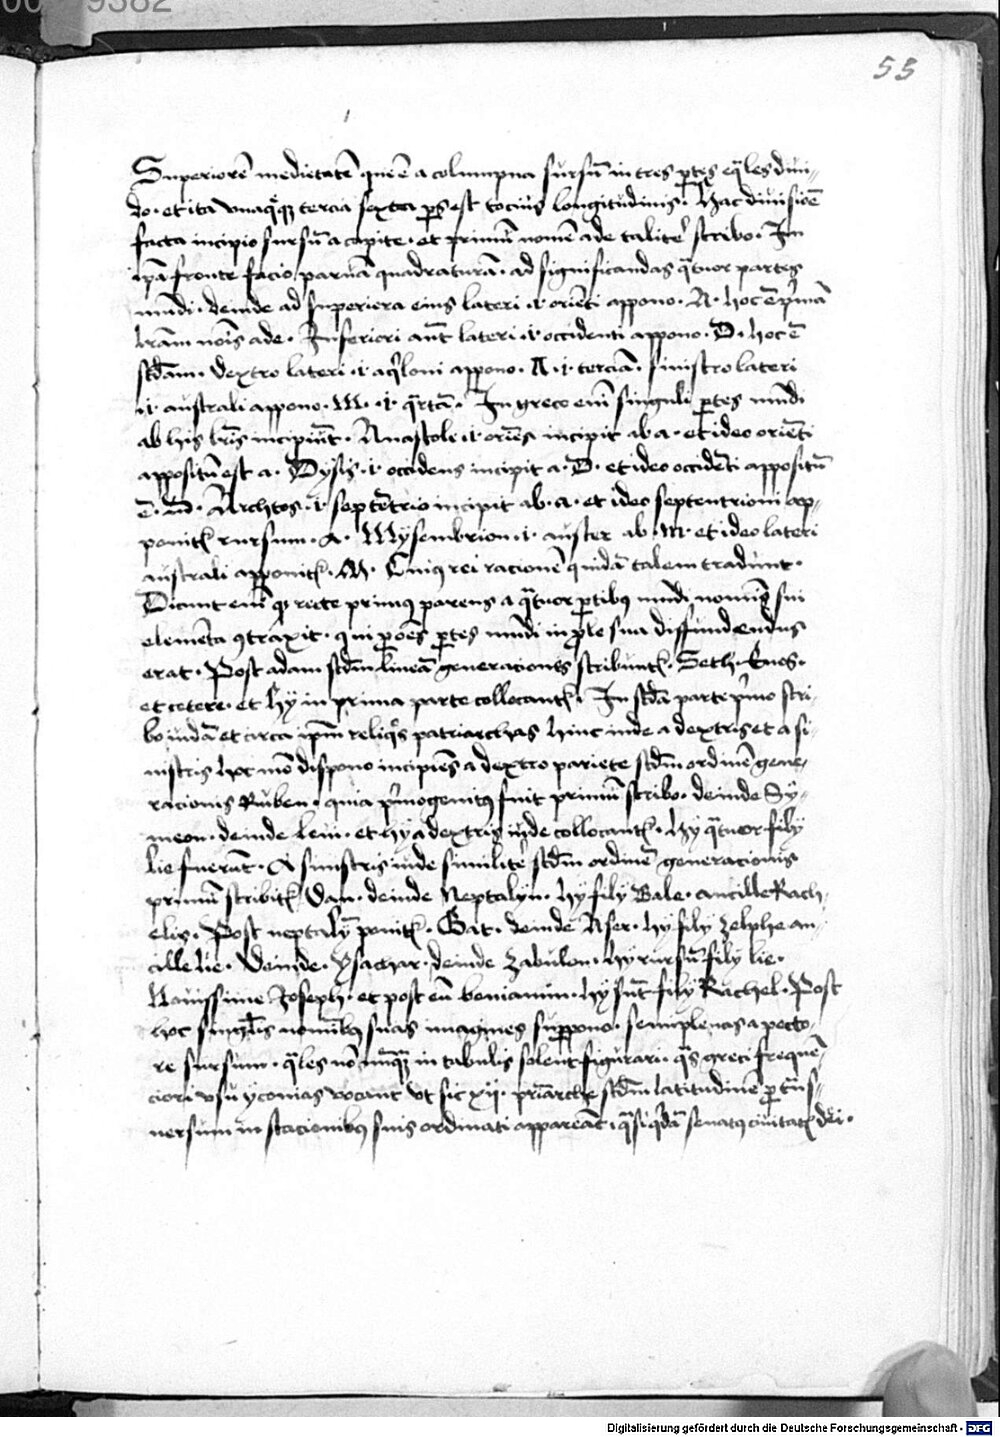 55
Superiorē medietatē que ē a columpna sursū in tres ptes eq̄les diui-
do · et ita vnaq̄q̨ tercia sexta ps est tocius longitudinis · hac diuisiōe
facta incipio sursū a capite · et primū nomē ade talitē scribo · In
ipā fronte facio paruā quadraturā · ad significandas q̄tuor partes
mūdi · deinde ad superiora eius lateri ·i· oriēti appono · A · hoc ē p̄mā
l̄ram nōis ade · Inferiori aūt lateri ·i· occidenti appono · D · hoc ē
scd̄am · dextro lateri ·i· aq̄loni appono · A ·i· terciā · sinistro lateri
·i· australi appono · M · ·i· q̄rtā · In greco enī singuli ptes mūdi
ab his l̄ris incipiūt · Anastole ·i· oriēs incipit ab a · et ideo oriēti
appositū est a · Dysis ·i· occidens incipit a · D · et ideo occidēti appositū
ē · D · Archtos ·i· septētrio incipit ab · a · et ideo septentrioni ap-
ponit᷑ rursum · A · Mysembrion ·i· auster ab · M · et ideo lateri
australi apponit᷑ · M · Cuius rei racionē quidā talem tradunt ·
Dicunt enī q̨ recte primus parens a q̄tuor ptibus mūdi nominis sui
elemēta ꝯtraxit · qui p oēs ptes mūdi in ple sua diffundendus
erat · Post adam scd̄m lineā generationis scribunt᷑ · Seth · Enos ·
et cetere · et hy in prima parte collocant᷑ · In scd̄a parte p̄mo scri-
bo iudā et circa ip̄m reliq̄s patriarchas hinc inde a dextris et a si-
nistris hoc mō dispono incipiēs a dextro pariete scd̄m ordinē gene-
racionis Ruben · quia p̄mogenitus fuit primū scribo · deinde Sy-
meon · deinde leui · et hy a dextris inde collocant᷑ · hy q̄tuor fily
lie fuerūt · A sinistris inde similitē scd̄m ordinē generacionis
primū scribit᷑ Dan · deinde Neptalyn · hy fily Bale · ancille Rach-
elis · Post neptalȳ ponit᷑ · Gat · deinde Aser · hy fily zelphe an-
cille lie · Deinde · ysachar · deinde zabulon · hy rursū fily lie ·
Nouissime Joseph · et post eū beniamin · hy sūt fily Rachel · Post
hoc singlis nomībus suas imagines suppono · semiplenas a pecto-
re sursum · q̄les nō nūq̄ in tabulis solent figurari · q̄s greci frequē-
ciori vsu yconias vocant vt sic xij · priārche scd̄m latitudinē p trās-
uersum in stacionibus suis ordinati appareāt · q̄si q̄dā senatus ciuitat᷑ dei ·
Digitalisierung gefördert durch die Deutsche Forschungsgemeinschaft · DFG